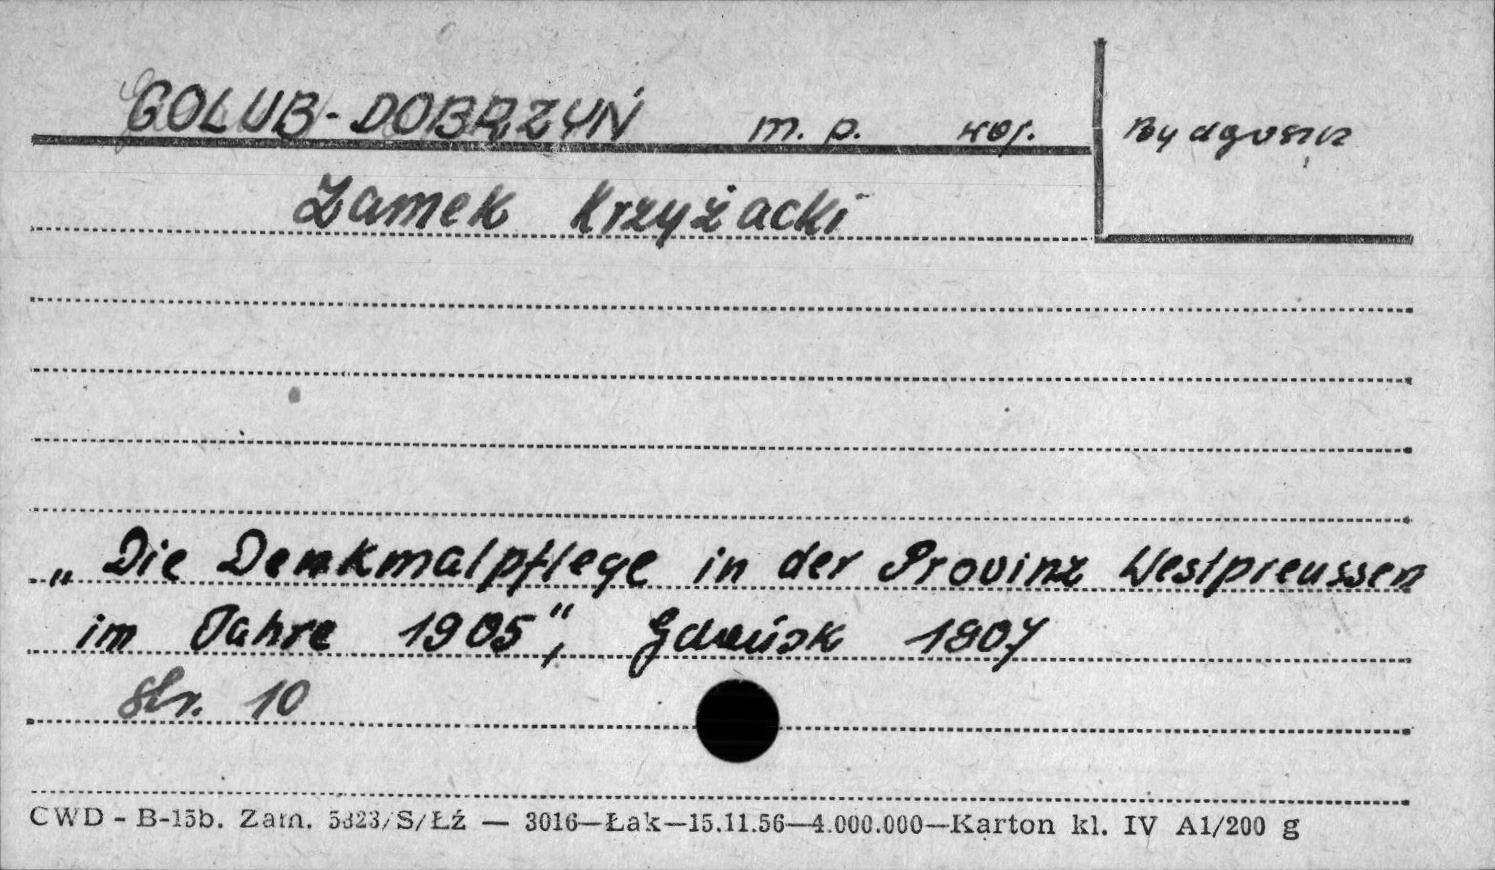 GOLUB-DOBRZYŃ m. p. woj. Bydgoszcz
Zamek Krzyżacki
„Die Denkmalpflege in der Provinz Westpreussen
im Jahre 1905", Gdańsk 1907
str. 10
CWD - B-15b. Zam. 5323/S/Łź — 3016—Łak—15.11.56—4.000.000—Karton kl. IV A1/200 g